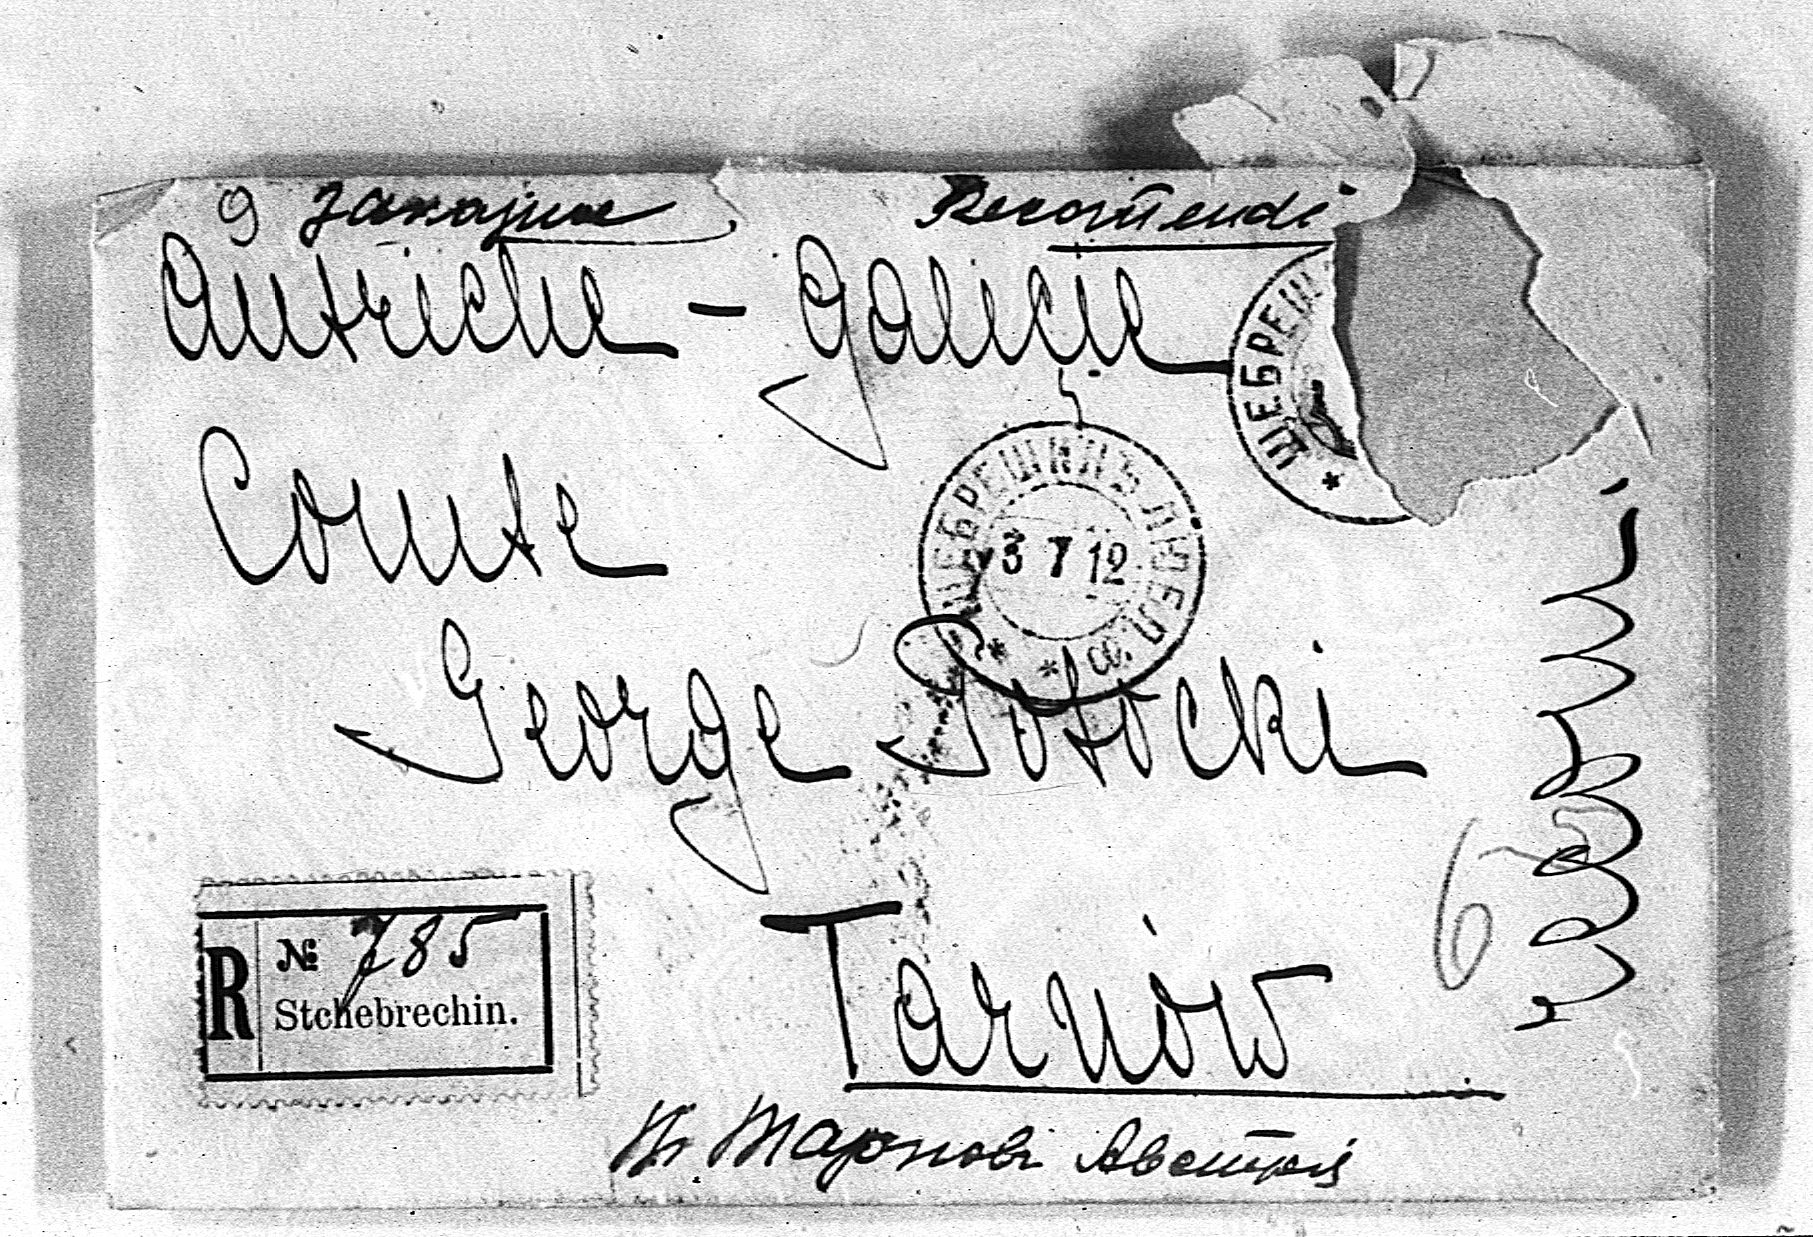 9 Заказное Recommandé
Autriche - Galicie
ЩЕБРЕШ
Comte
ЩЕБРЕШИНЪ ЛЮБЛ.
3 7 12
George Potocki
R № 785
Stchebrechin.
Tarnów
6
Въ Тарновъ Австрія